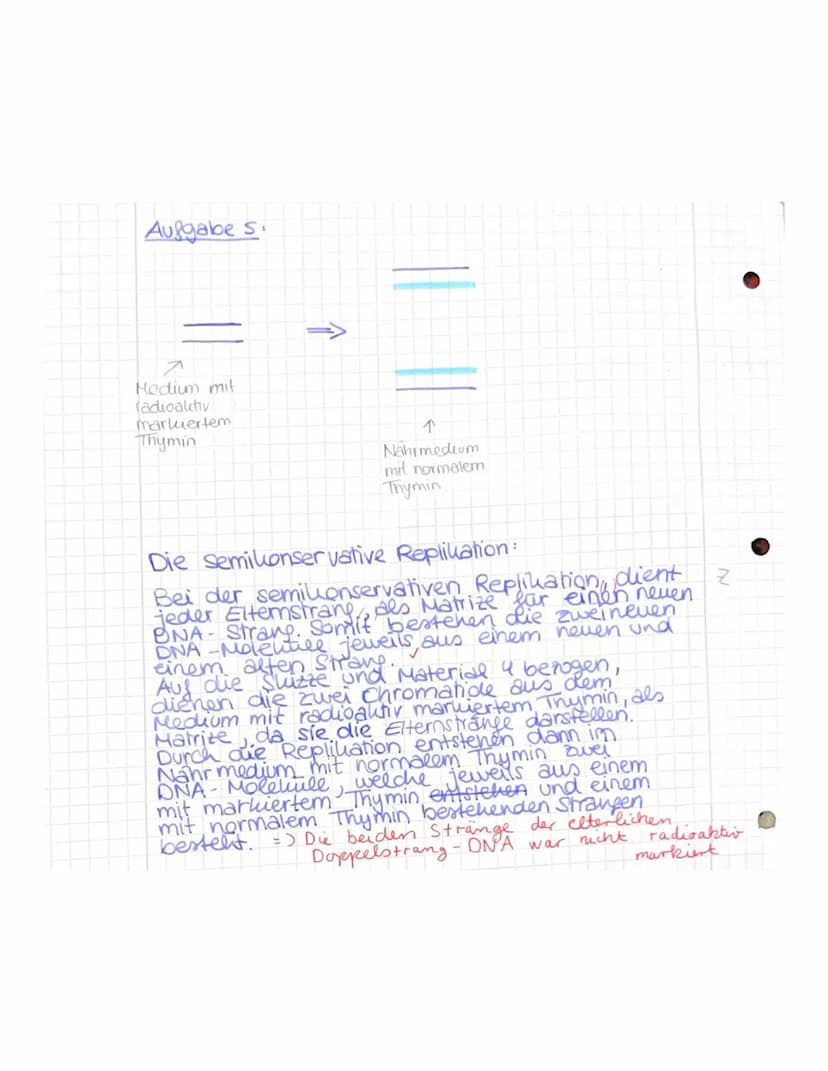 Aufgabe 5:
Medium mit
radioaktiv
markiertem
Thymin
Nährmedium
mit normalem
Thymin
Die semikonservative Replikation:
Bei der semikonservativen Replikation, dient
jeder Elternstrang, als Matrize für einen neuen
DNA-Strang. Somit bestehen die zwei neuen
DNA-Moleküle jeweils aus einem neuen und
einem alten Strang.
Auf die Skizze und Material 4 bezogen,
dienen die zwei Chromatide aus dem
Medium mit radioaktiv markiertem Thymin, als
Matrize, da sie die Elternstränge darstellen.
Durch die Replikation entstehen dann im
Nährmedium mit normalem Thymin zwei
DNA-Moleküle, welche jeweils aus einem
mit markiertem Thymin entstehen und einem
mit normalem Thymin bestehenden Strangen
besteht. => Die beiden Stränge der elterlichen
Doppelstrang-DNA war nicht radioaktiv
markiert
Z